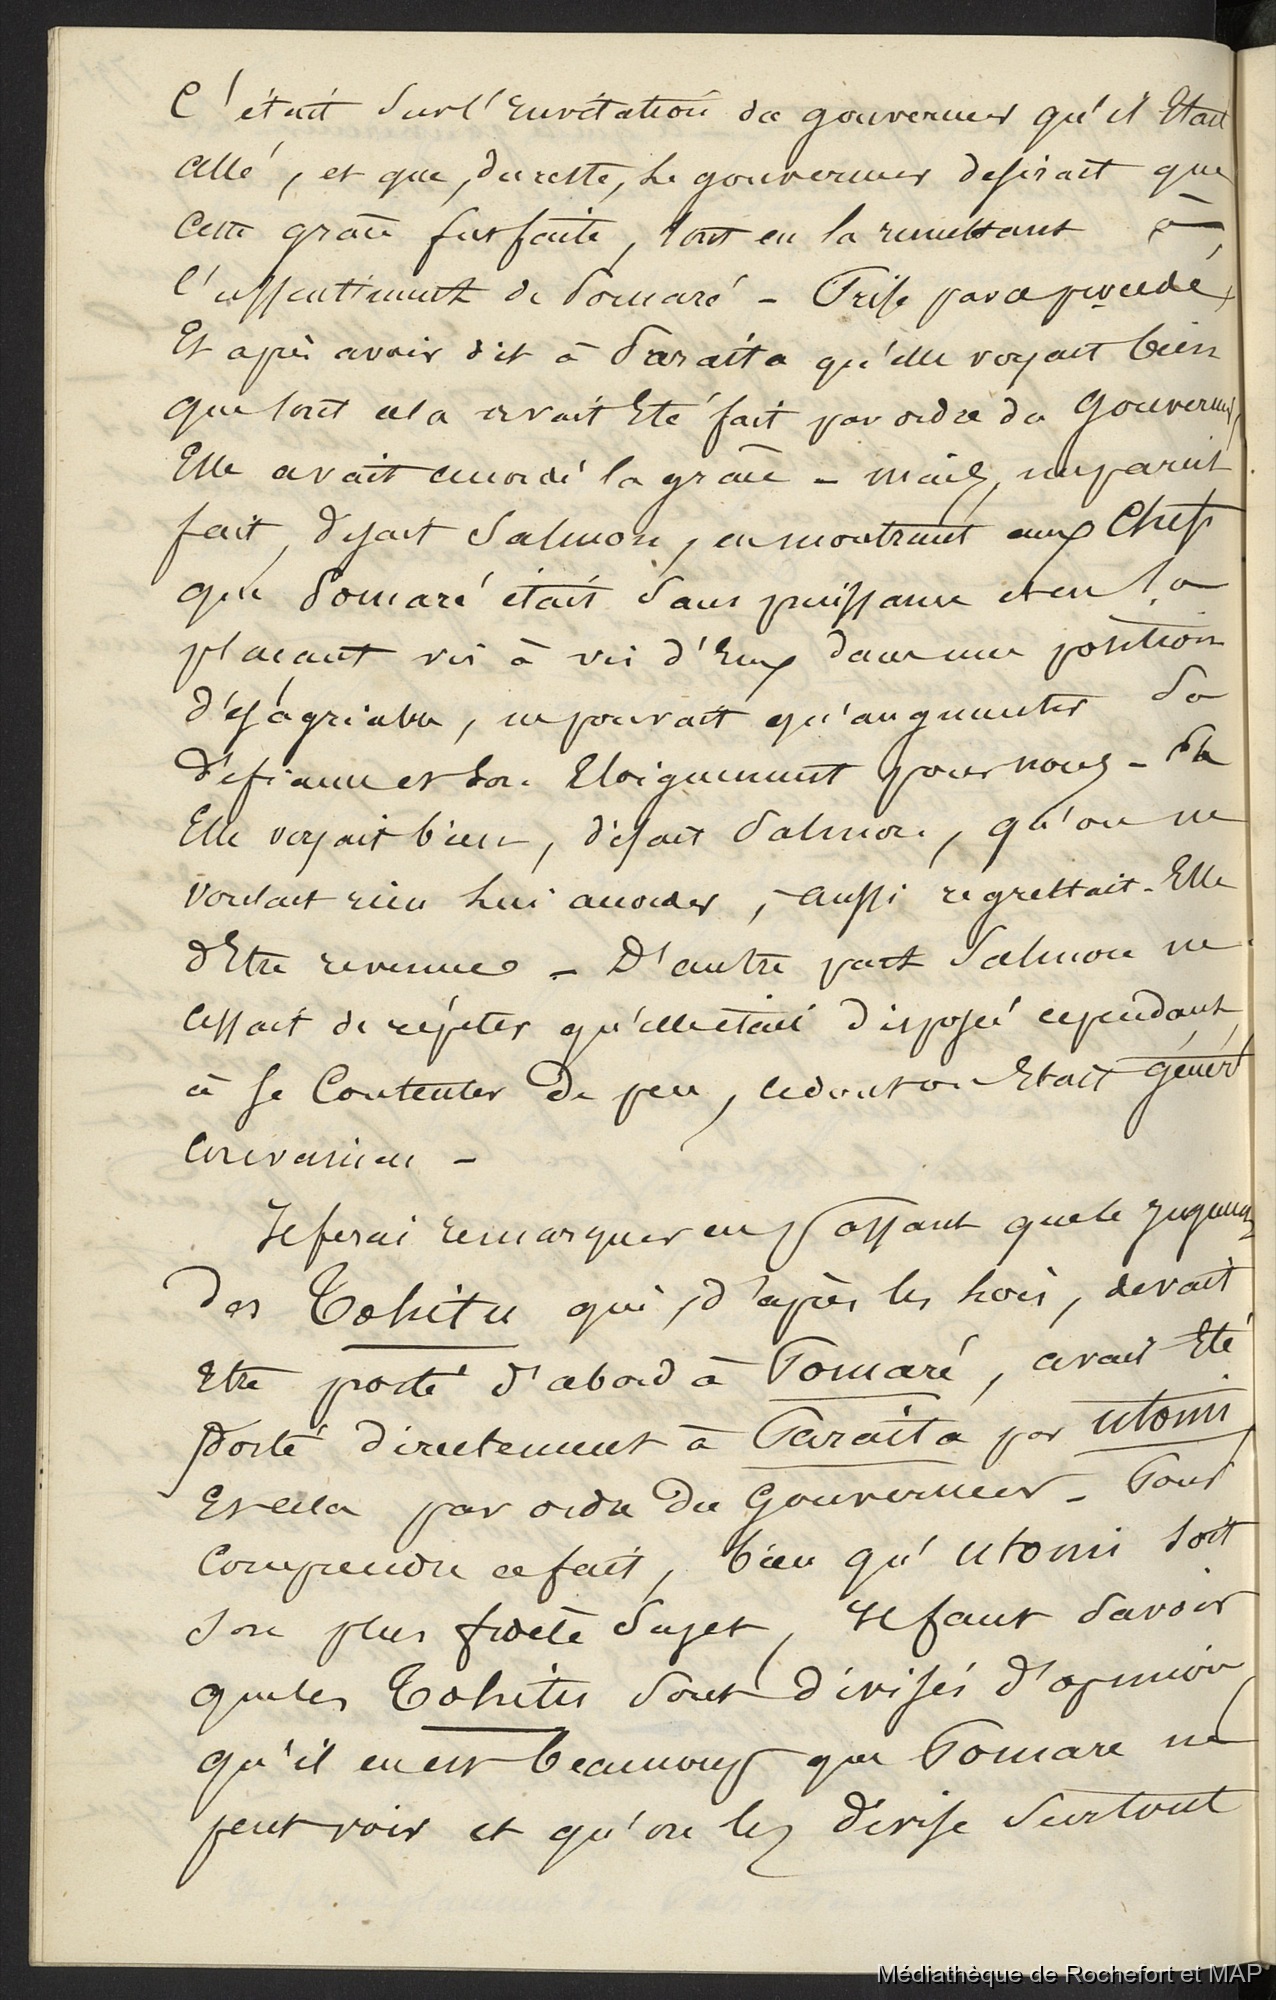 C'était sur l'invitation du gouverneur qu'il était
allé, et que, du reste, le gouverneur desirait que
cette grâce fut faite, tout en la remettant à
l'assentiment de Pomaré - Prise par ce procédé,
Et après avoir dit à Paraïta qu'elle voyait bien
que tout cela avait été fait par ordre du Gouverneur,
Elle avait accordé la grâce - mais, un pareil
fait, disait Salmon, en montrant aux Chefs
que Pomaré était sans puissance et en la
plaçant vis à vis d'Eux dans une position
désagréable, ne pouvait qu'augmenter sa
défiance et son Eloignement pour nous -
Elle voyait bien, disait Salmon, qu'on ne
voulait rien lui accorder, aussi regrettait-Elle
d'Etre revenue - D'autre part Salmon ne
cessait de répéter qu'elle était disposée cependant
à se Contenter de peu, ce dont on Etait génér
convaincu -
Je ferai remarquer en passant que le jugement
des Tohitu qui, d'après les lois, devait
Etre porté d'abord à Pomaré, avait Eté
porté directement à Paraïta par Utomi
Et cela par ordre du Gouverneur - Pour
Comprendre ce fait, bien qu'Utomi soit
son plus fidèle sujet, Il faut savoir
que les Tohitu sont divisés d'opinion,
qu'il en est beaucoup que Pomare ne
peut voir et qu'on les divise surtout
Médiathèque de Rochefort et MAP